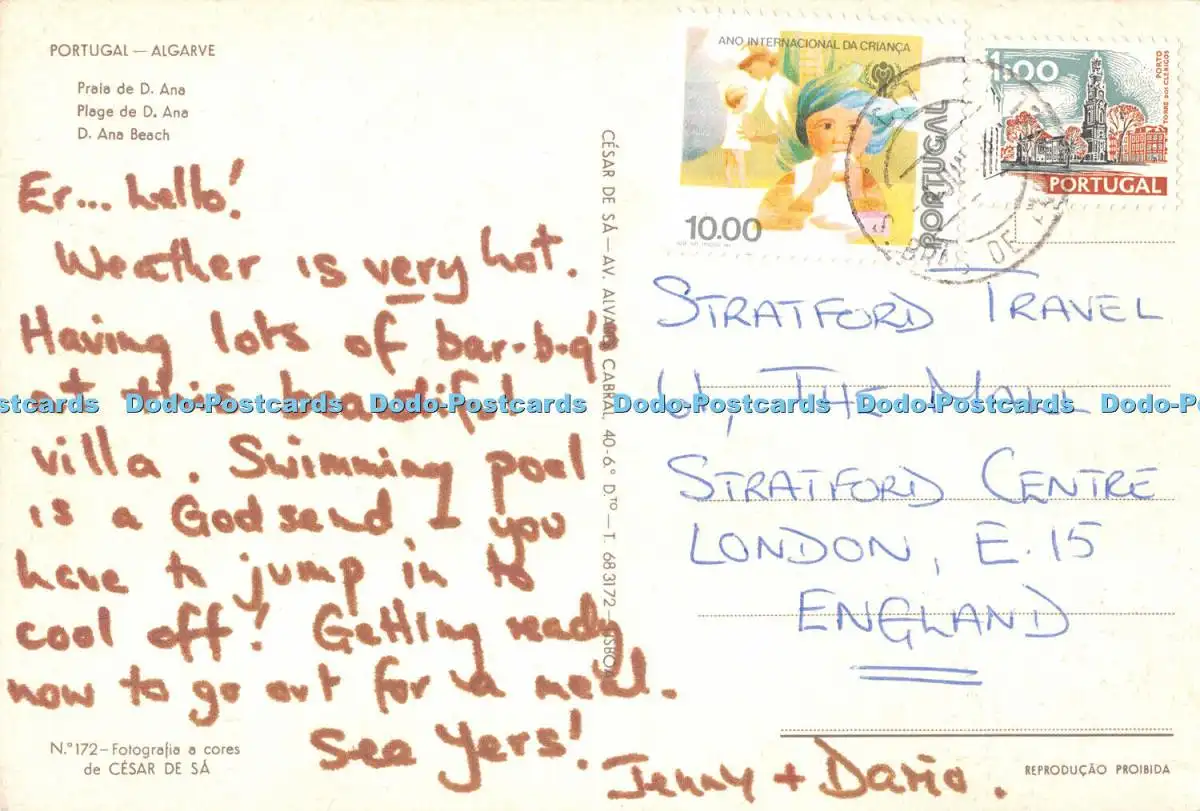 PORTUGAL — ALGARVE
Praia de D. Ana
Plage de D. Ana
D. Ana Beach
Er... hello!
Weather is very hot.
Having lots of bar-b-q's
at this beautiful
villa. Swimming pool
is a Godsend I you
have to jump in to
cool off! Getting ready
now to go out for a meal.
See Yers!
Jenny + Dario.
N.º 172 – Fotografia a cores
de CÉSAR DE SÁ
CÉSAR DE SÁ — AV. ALVARES CABRAL, 40-6.º D.TO — T. 683172 — LISBOA
ANO INTERNACIONAL DA CRIANÇA
10.00
PORTUGAL
1$00
PORTO
TORRE DOS CLÉRIGOS
PORTUGAL
STRATFORD TRAVEL
THE MALL
STRATFORD CENTRE
LONDON, E.15
ENGLAND
REPRODUÇÃO PROIBIDA
Dodo-Postcards Dodo-Postcards Dodo-Postcards Dodo-Postcards